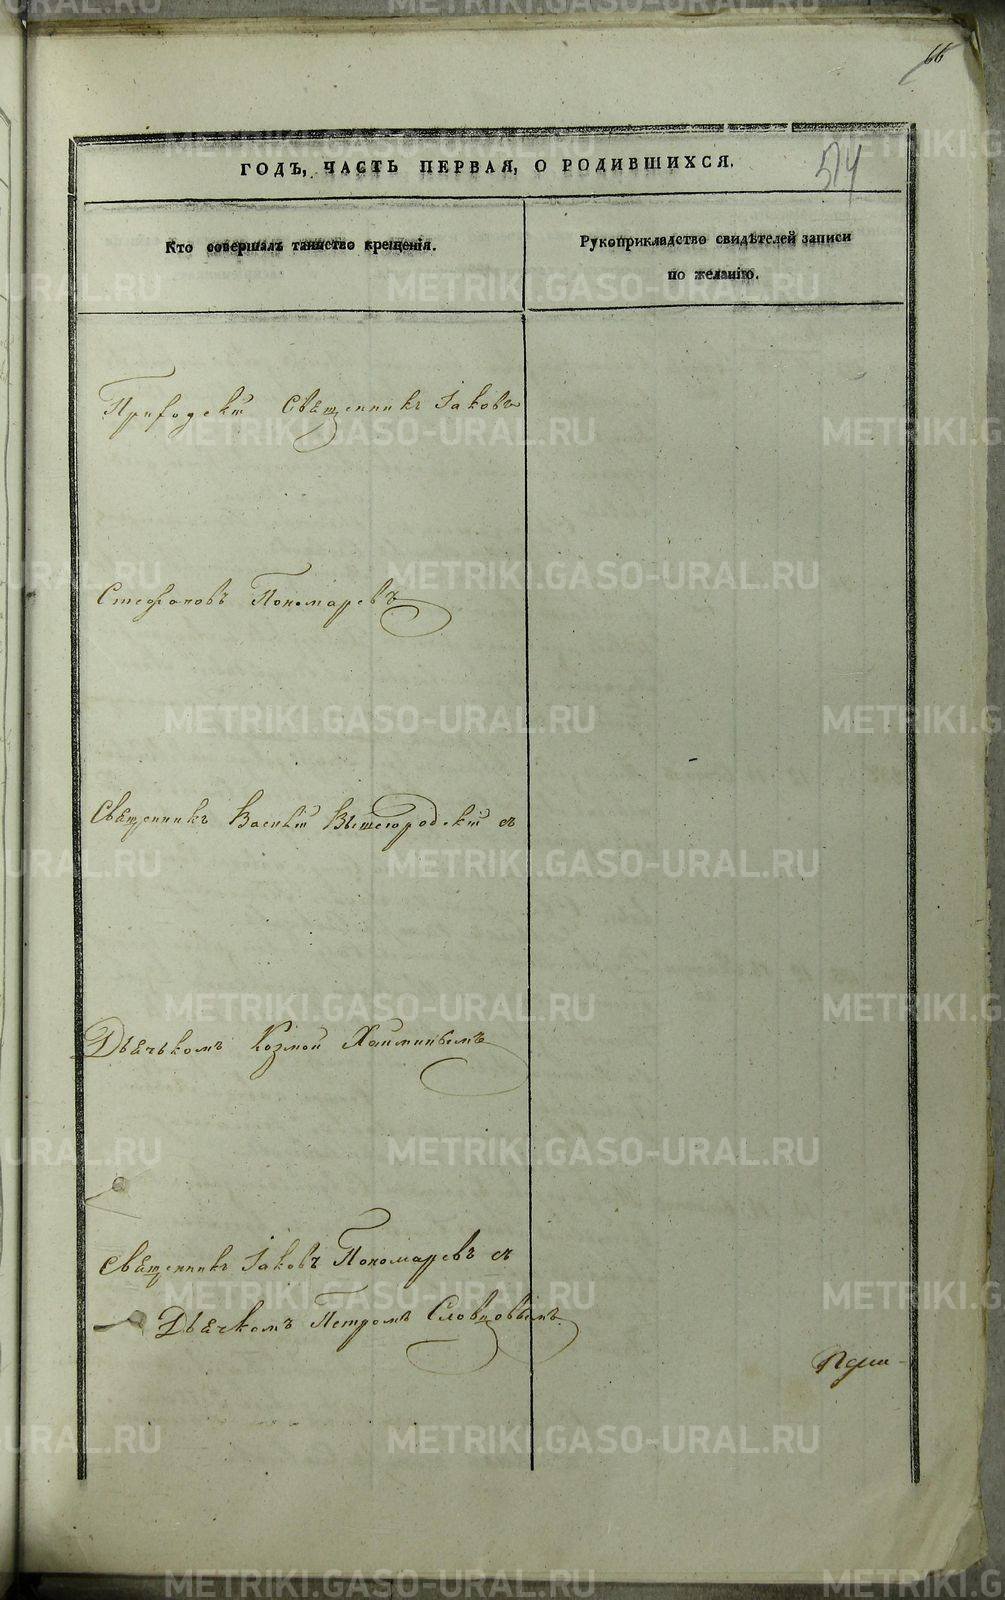 66
ГОДЪ, ЧАСТЬ ПЕРВАЯ, О РОДИВШИХСЯ.
514
Кто совершалъ таинство крещенія.
Рукоприкладство свидѣтелей записи
по желанію.
Приходскій Священникъ Іаковъ
Стефановъ Пономаревъ
Священникъ Василій Вышегородскій съ
Дьячькомъ Козмой
Священникъ Іаковъ Пономаревъ съ
Дьячкомъ Петромъ Словцовымъ
METRIKI.GASO-URAL.RU